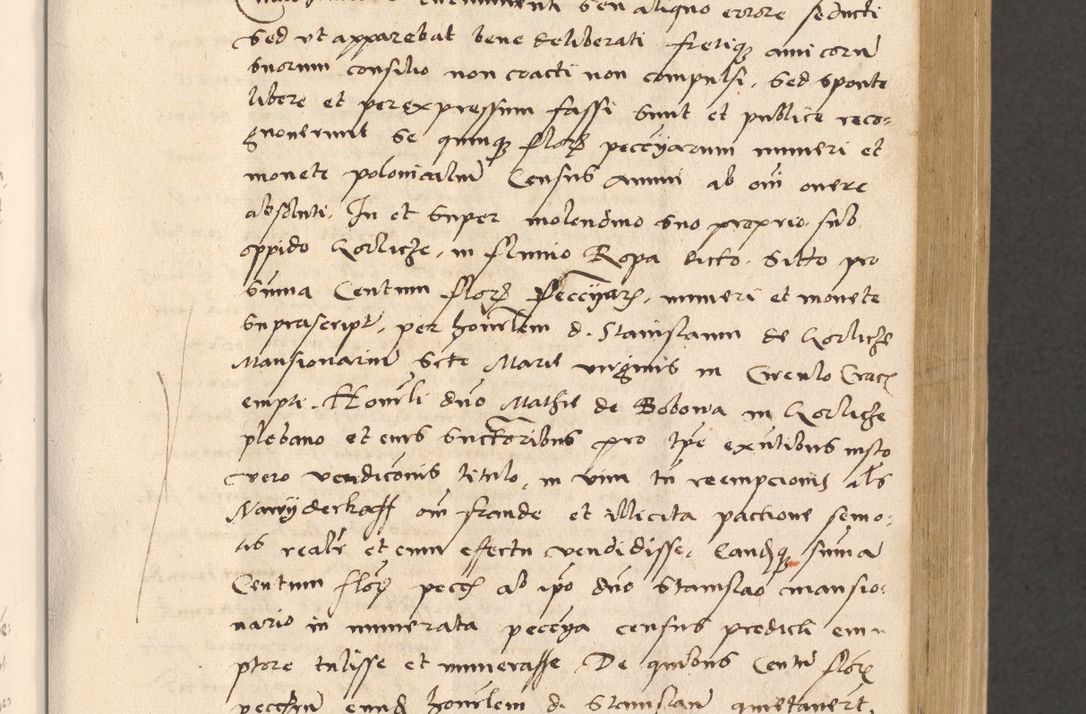 seu aliquo errore seducti
Sed ut apparebat bene deliberati fretiq amicorū
suorum consilio non coacti non compulsi, sed sponte
libere et per expressum fassi sunt et publice reco-
gnoverunt se quinq flor peccyarum numeri et
monete polonicalium Census annui ab oīm onere
absoluti, In et super molendino suo proprio, sub
oppido Gorlicze, in fluuio Ropa dicto, sitto pro
summa Centum flor Peccyar, numeri et monete
suprascript, per honorlem d. Stanislaum de Gorlicze
Mansionarium Scte Marie virginis in Circulo Crac
empti. Honorli dno Mathie de Bobowa in Gorlicze
plebano et eius successoribus pro tpe exñtibus iusto
vero vendicõnis titulo, in vim tñ reempcionis als
Nawyderkaff oīm fraude et illicita pactione semo-
tis realr et cum effectu vendidisse, Eandq summā
Centum flor pecc ab ipo dño Stanislao mansio-
nario in numerata peccya census predicti em
ptore tulisse et numerasse. De quibus Centū flor
honorlem d. Stanislaū quietauert,